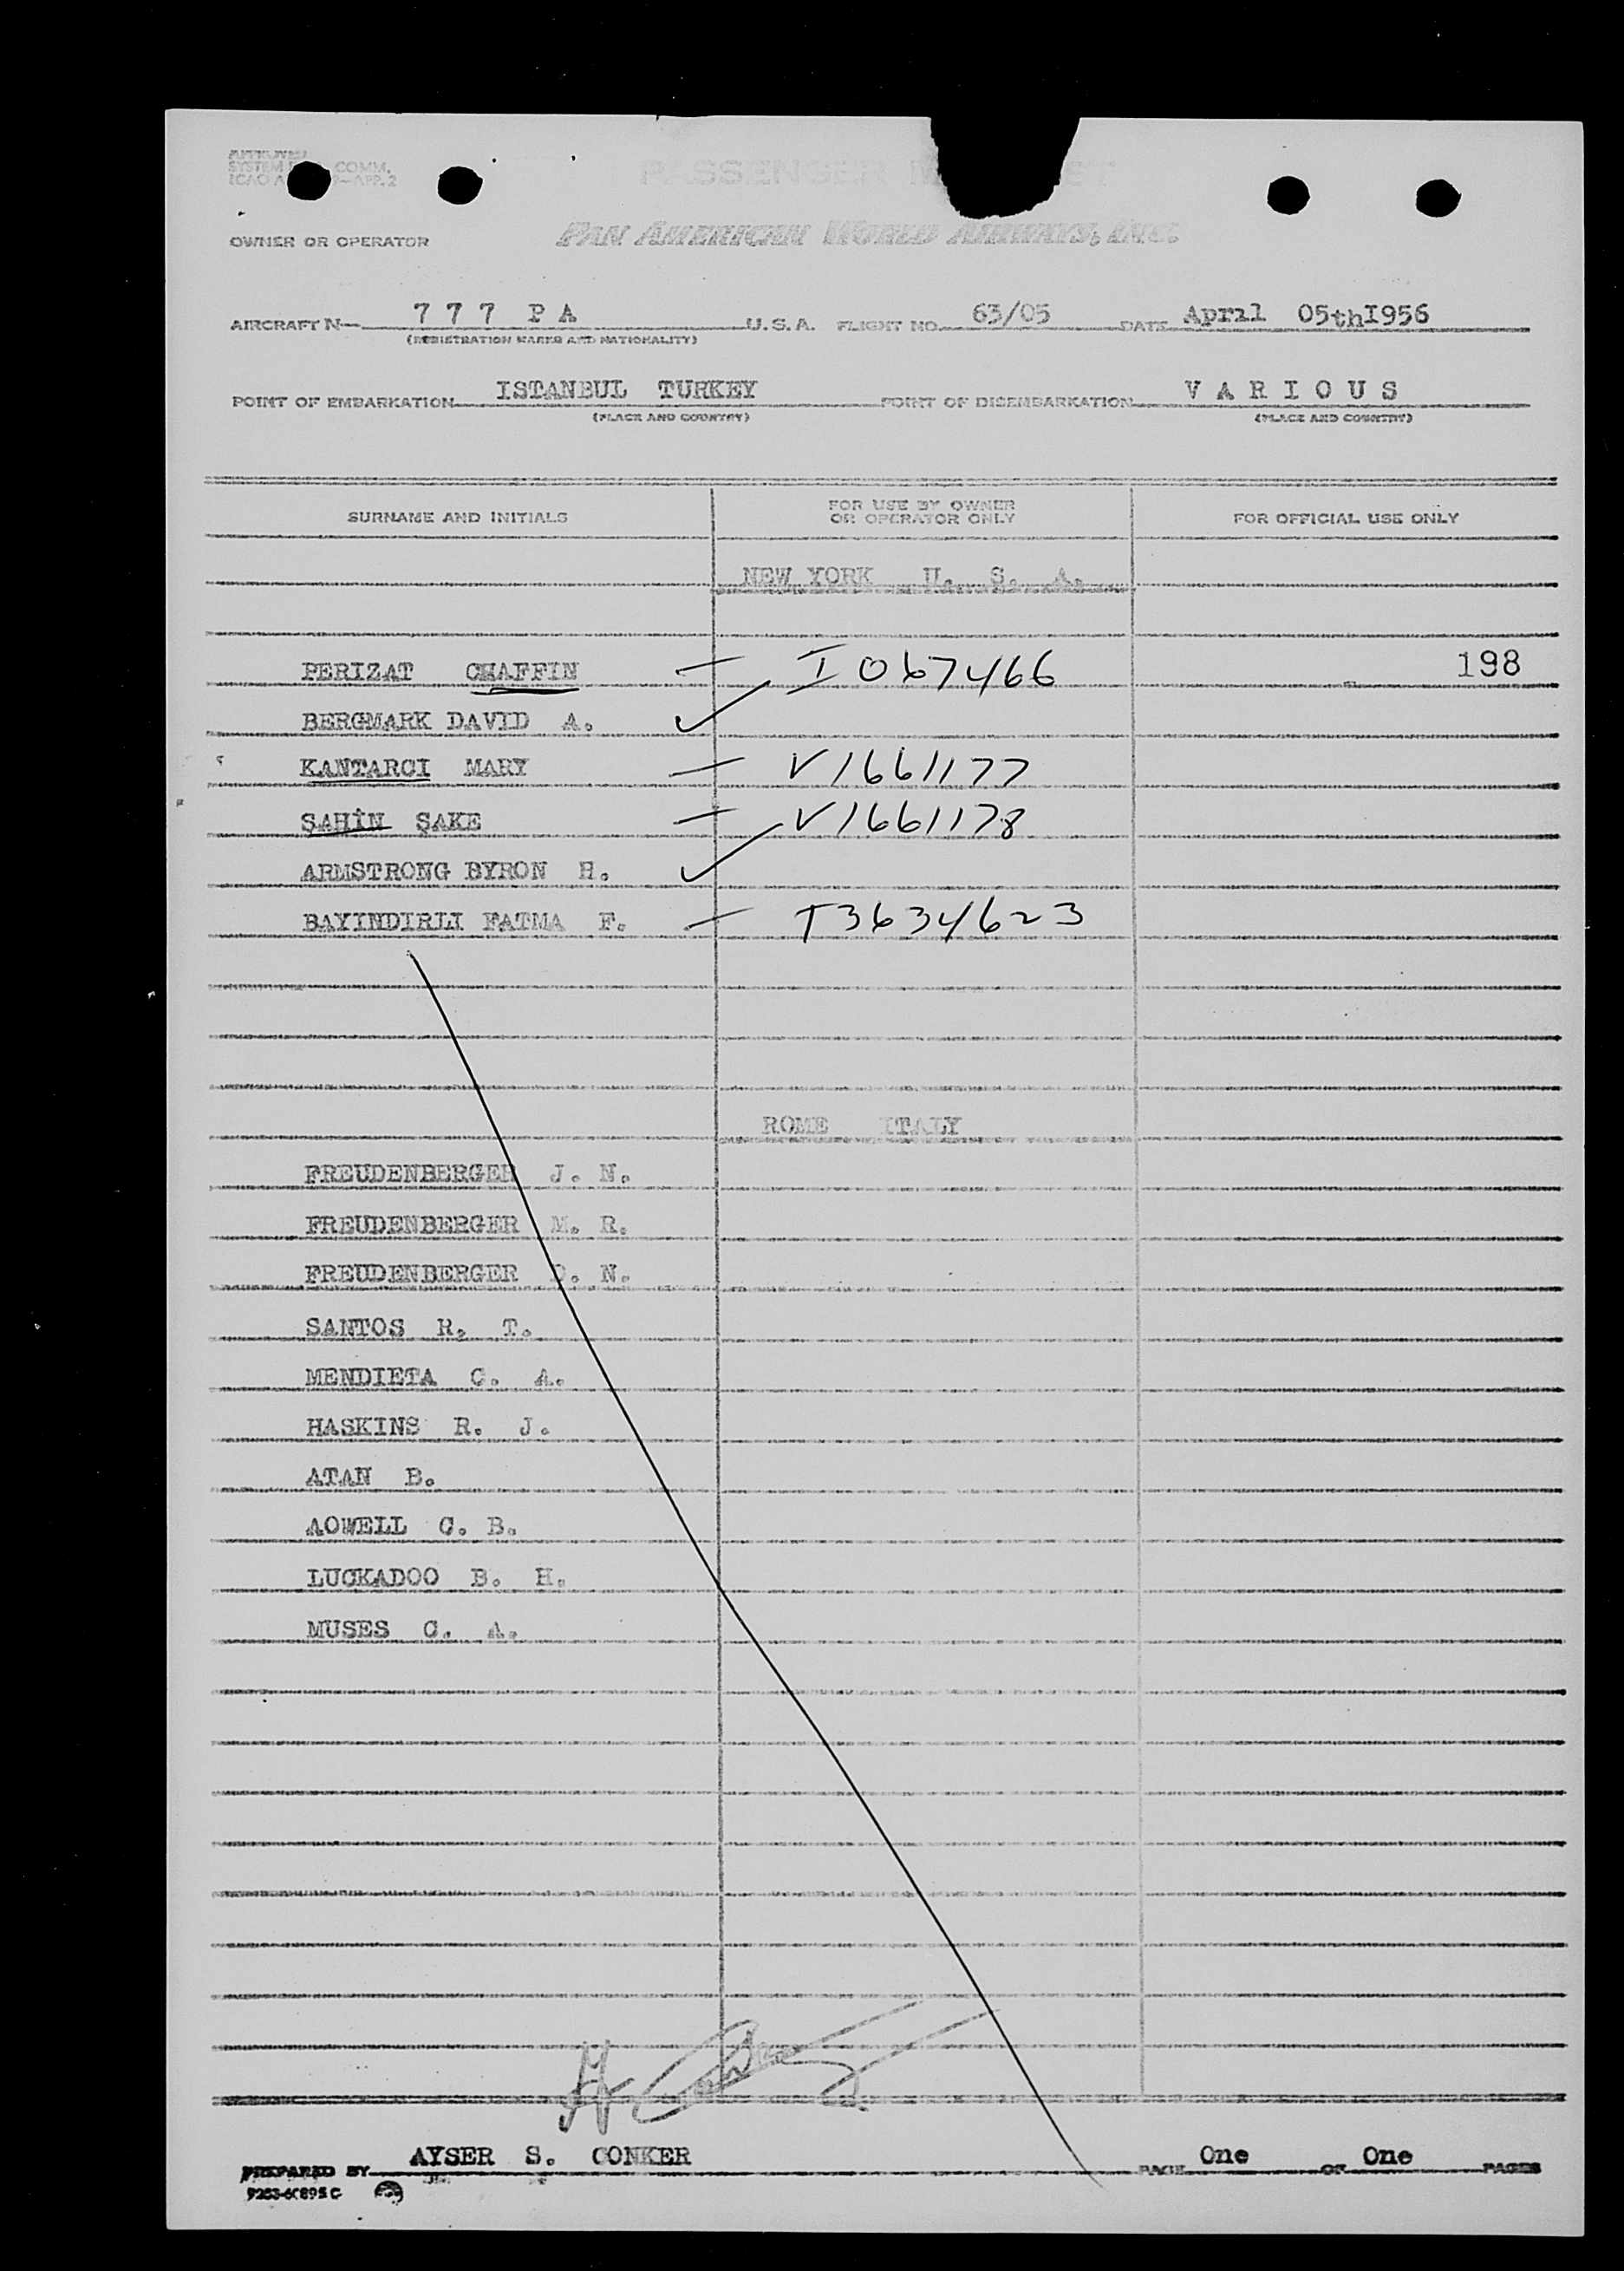 APPROVED
SYSTEM COMM.
ICAO A —APP. 2
PASSENGER M ST
OWNER OR OPERATOR PAN AMERICAN WORLD AIRWAYS, INC.
AIRCRAFT N— 7 7 7 P A U. S. A. FLIGHT NO. 63/05 DATE April 05thI956
(REGISTRATION MARKS AND NATIONALITY)
POINT OF EMBARKATION ISTANBUL TURKEY POINT OF DISEMBARKATION V A R I O U S
(PLACE AND COUNTRY) (PLACE AND COUNTRY)
SURNAME AND INITIALS FOR USE BY OWNER OR OPERATOR ONLY FOR OFFICIAL USE ONLY
NEW YORK U. S. A.
PERIZAT CHAFFIN — I 067466 198
BERGMARK DAVID A. ✓
KANTARCI MARY — V1661177
ŞAHİN ŞAKE — V1661178
ARMSTRONG BYRON H. ✓
BAYINDIRLI FATMA F. — T3634623
ROME ITALY
FREUDENBERGER J. N.
FREUDENBERGER M. R.
FREUDENBERGER D. N.
SANTOS R. T.
MENDIETA C. A.
HASKINS R. J.
ATAN B.
AOWELL C. B.
LUCKADOO B. H.
MUSES C. A.
PREPARED BY AYSER S. CONKER PAGE One OF One PAGES